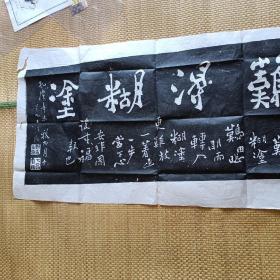 難得糊塗
難由聰
明而
轉入
糊塗
更難放
一著退
一步
當下心
安非圖
後來福
報也